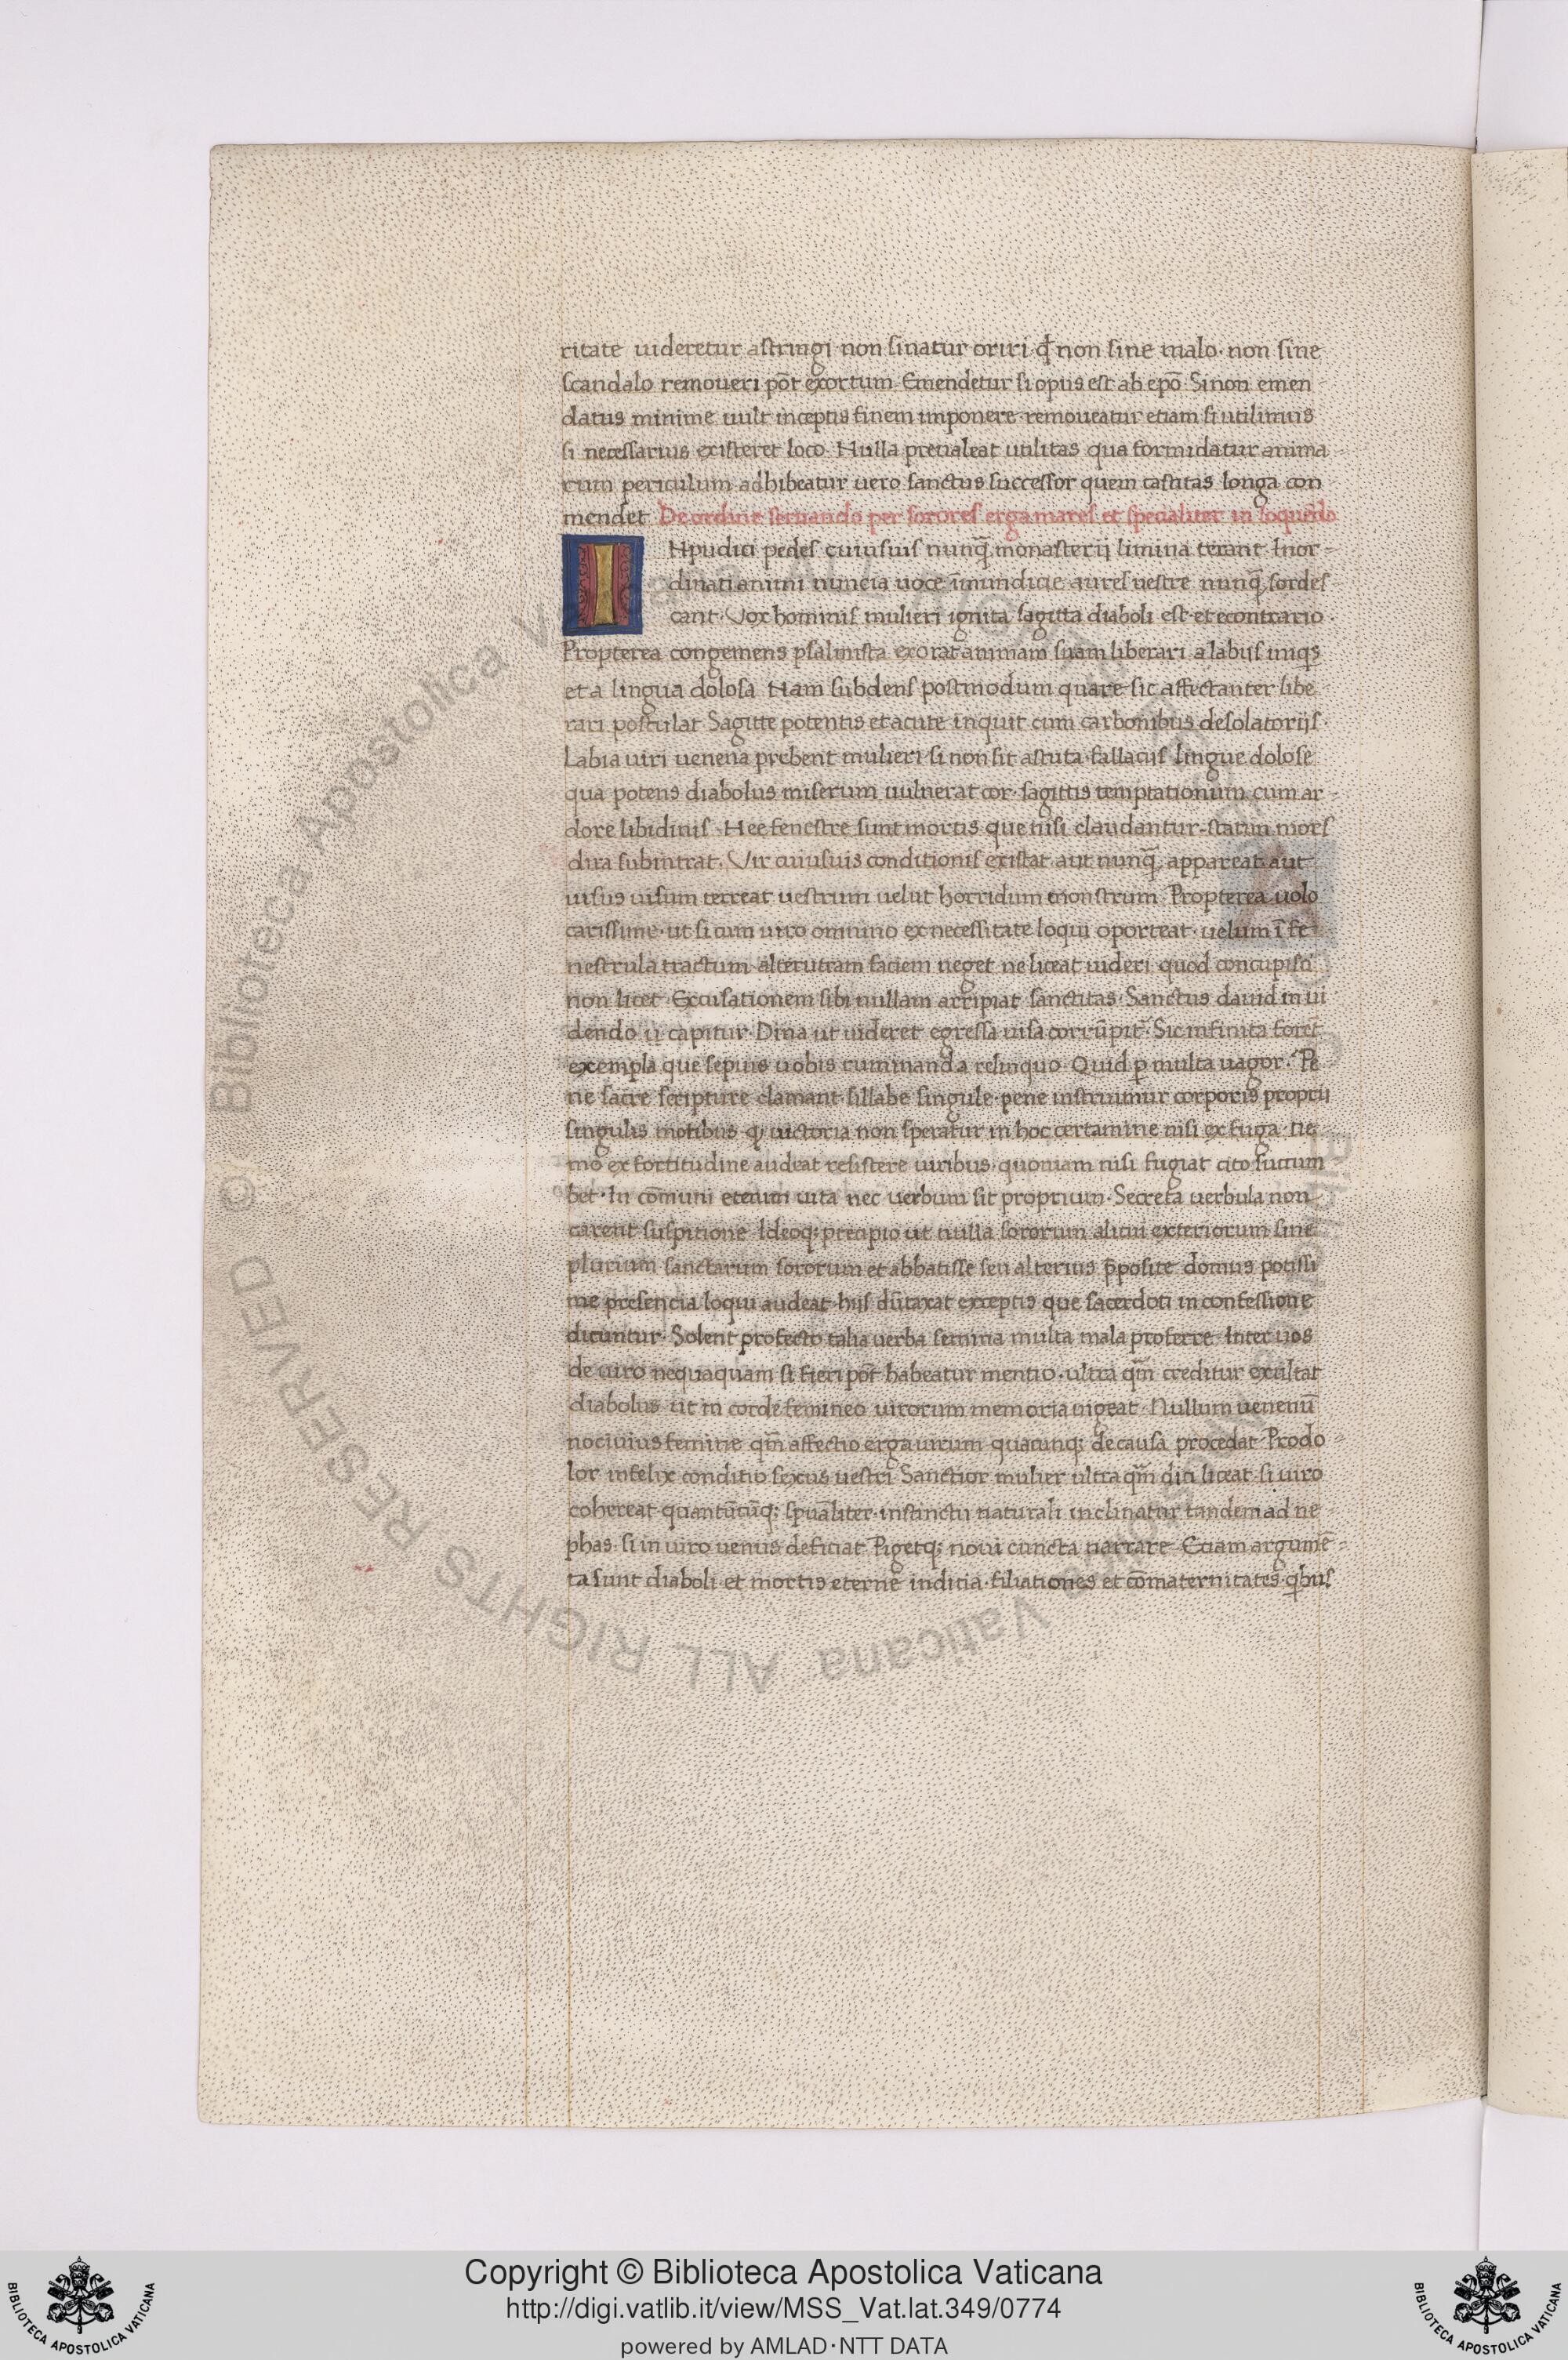 ritate uideretur astringi non sinatur oriri qđ non sine malo· non sine
scandalo remoueri põt exortum· Emendetur si opus est ab epõ· Si non emen-
datus minime uult inceptis finem imponere remoueatur etiam si utilimus
si necessarius existeret loco· Nulla preualeat utilitas qua formidatur anima-
rum periculum adhibeatur uero sanctus successor quem castitas longa con
mendet De ordine seruando per sorores erga mares et specialiter in loquẽdo
INpudici pedes cuiusuis nunq̃ monasterij limina terant· Inor-
dinati animi nuncia uoce ĩmundicie aures uestre nunq̃ sordes
cant· Vox hominis mulieri ignita sagitta diaboli est· et econtrario·
Propterea congemens psalmista exorat animam suam liberari a labijs iniqs
et a lingua dolosa· Nam subdens postmodum quare sic affectanter libe
rari postulat· Sagitte potentis et acute inquit cum carbonibus desolatorijs·
Labia uiri uenena prebent mulieri si non sit astuta· fallacijs lingue dolose
qua potens diabolus miserum uulnerat cor· sagittis temptationum cum ar-
dore libidinis· Hee fenestre sunt mortis que nisi claudantur· statim mors
dira subintrat· Vir cuiusuis conditionis existat aut nunq̃ appareat aut
uisus uisum terreat uestrum uelut horridum monstrum· Propterea uolo
carissime· ut si cum uiro omnino ex necessitate loqui oporteat· uelum ĩ fe
nestrula tractum alterutram faciem neget ne liceat uideri quod concupisci
non licet· Excusationem sibi nullam arripiat sanctitas· Sanctus dauid in ui
dendo capitur· Dina ut uideret egressa uisa corrũpit̃· Sic infinita forẽt
exempla que sepius uobis ruminanda relinquo· Quid p multa uagor· Pe
ne sacre scripture clamant sillabe singule· pene instruimur corporis proprij
singulis motibus q uictoria non speratur in hoc certamine nisi ex fuga· ne
mo ex fortitudine audeat resistere uiribus· quoniam nisi fugiat cito succum
bet· In cõmuni etenim uita nec uerbum sit proprium· Secreta uerbula non
carent suspitione· Ideoq; precipio ut nulla sororum alicui exteriorum sine
plurium sanctarum sororum et abbatisse seu alterius p̃posite domus potissi
me presencia loqui audeat· hijs dũtaxat exceptis que sacerdoti in confessione
dicuntur· Solent profecto talia uerba semina multa mala proferre· Inter uos
de uiro nequaquam si fieri põt habeatur mentio· ultra qm̃ creditur exultat
diabolus ut in corde femineo uirorum memoria uigeat· Nullum uenenũ
nociuius femine qm̃ affectio erga uirum quacunq; de causa procedat· Prodo
lor infelix conditio sexus uestri· Sanctior mulier ultra qm̃ dici liceat si uiro
cohereat quantũcũq; sp̃ualiter· instinctu naturali inclinatur tandem ad ne
phas· si in uiro uenus deficiat· Pigetq; noui cuncta narrare· Etiam argumẽ-
ta sunt diaboli et mortis eterne indicia· filiationes et cõmaternitates· qbus
© Biblioteca Apostolica Vaticana ALL RIGHTS RESERVED
Copyright © Biblioteca Apostolica Vaticana
http://digi.vatlib.it/view/MSS_Vat.lat.349/0774
powered by AMLAD·NTT DATA
BIBLIOTECA APOSTOLICA VATICANA
BIBLIOTECA APOSTOLICA VATICANA